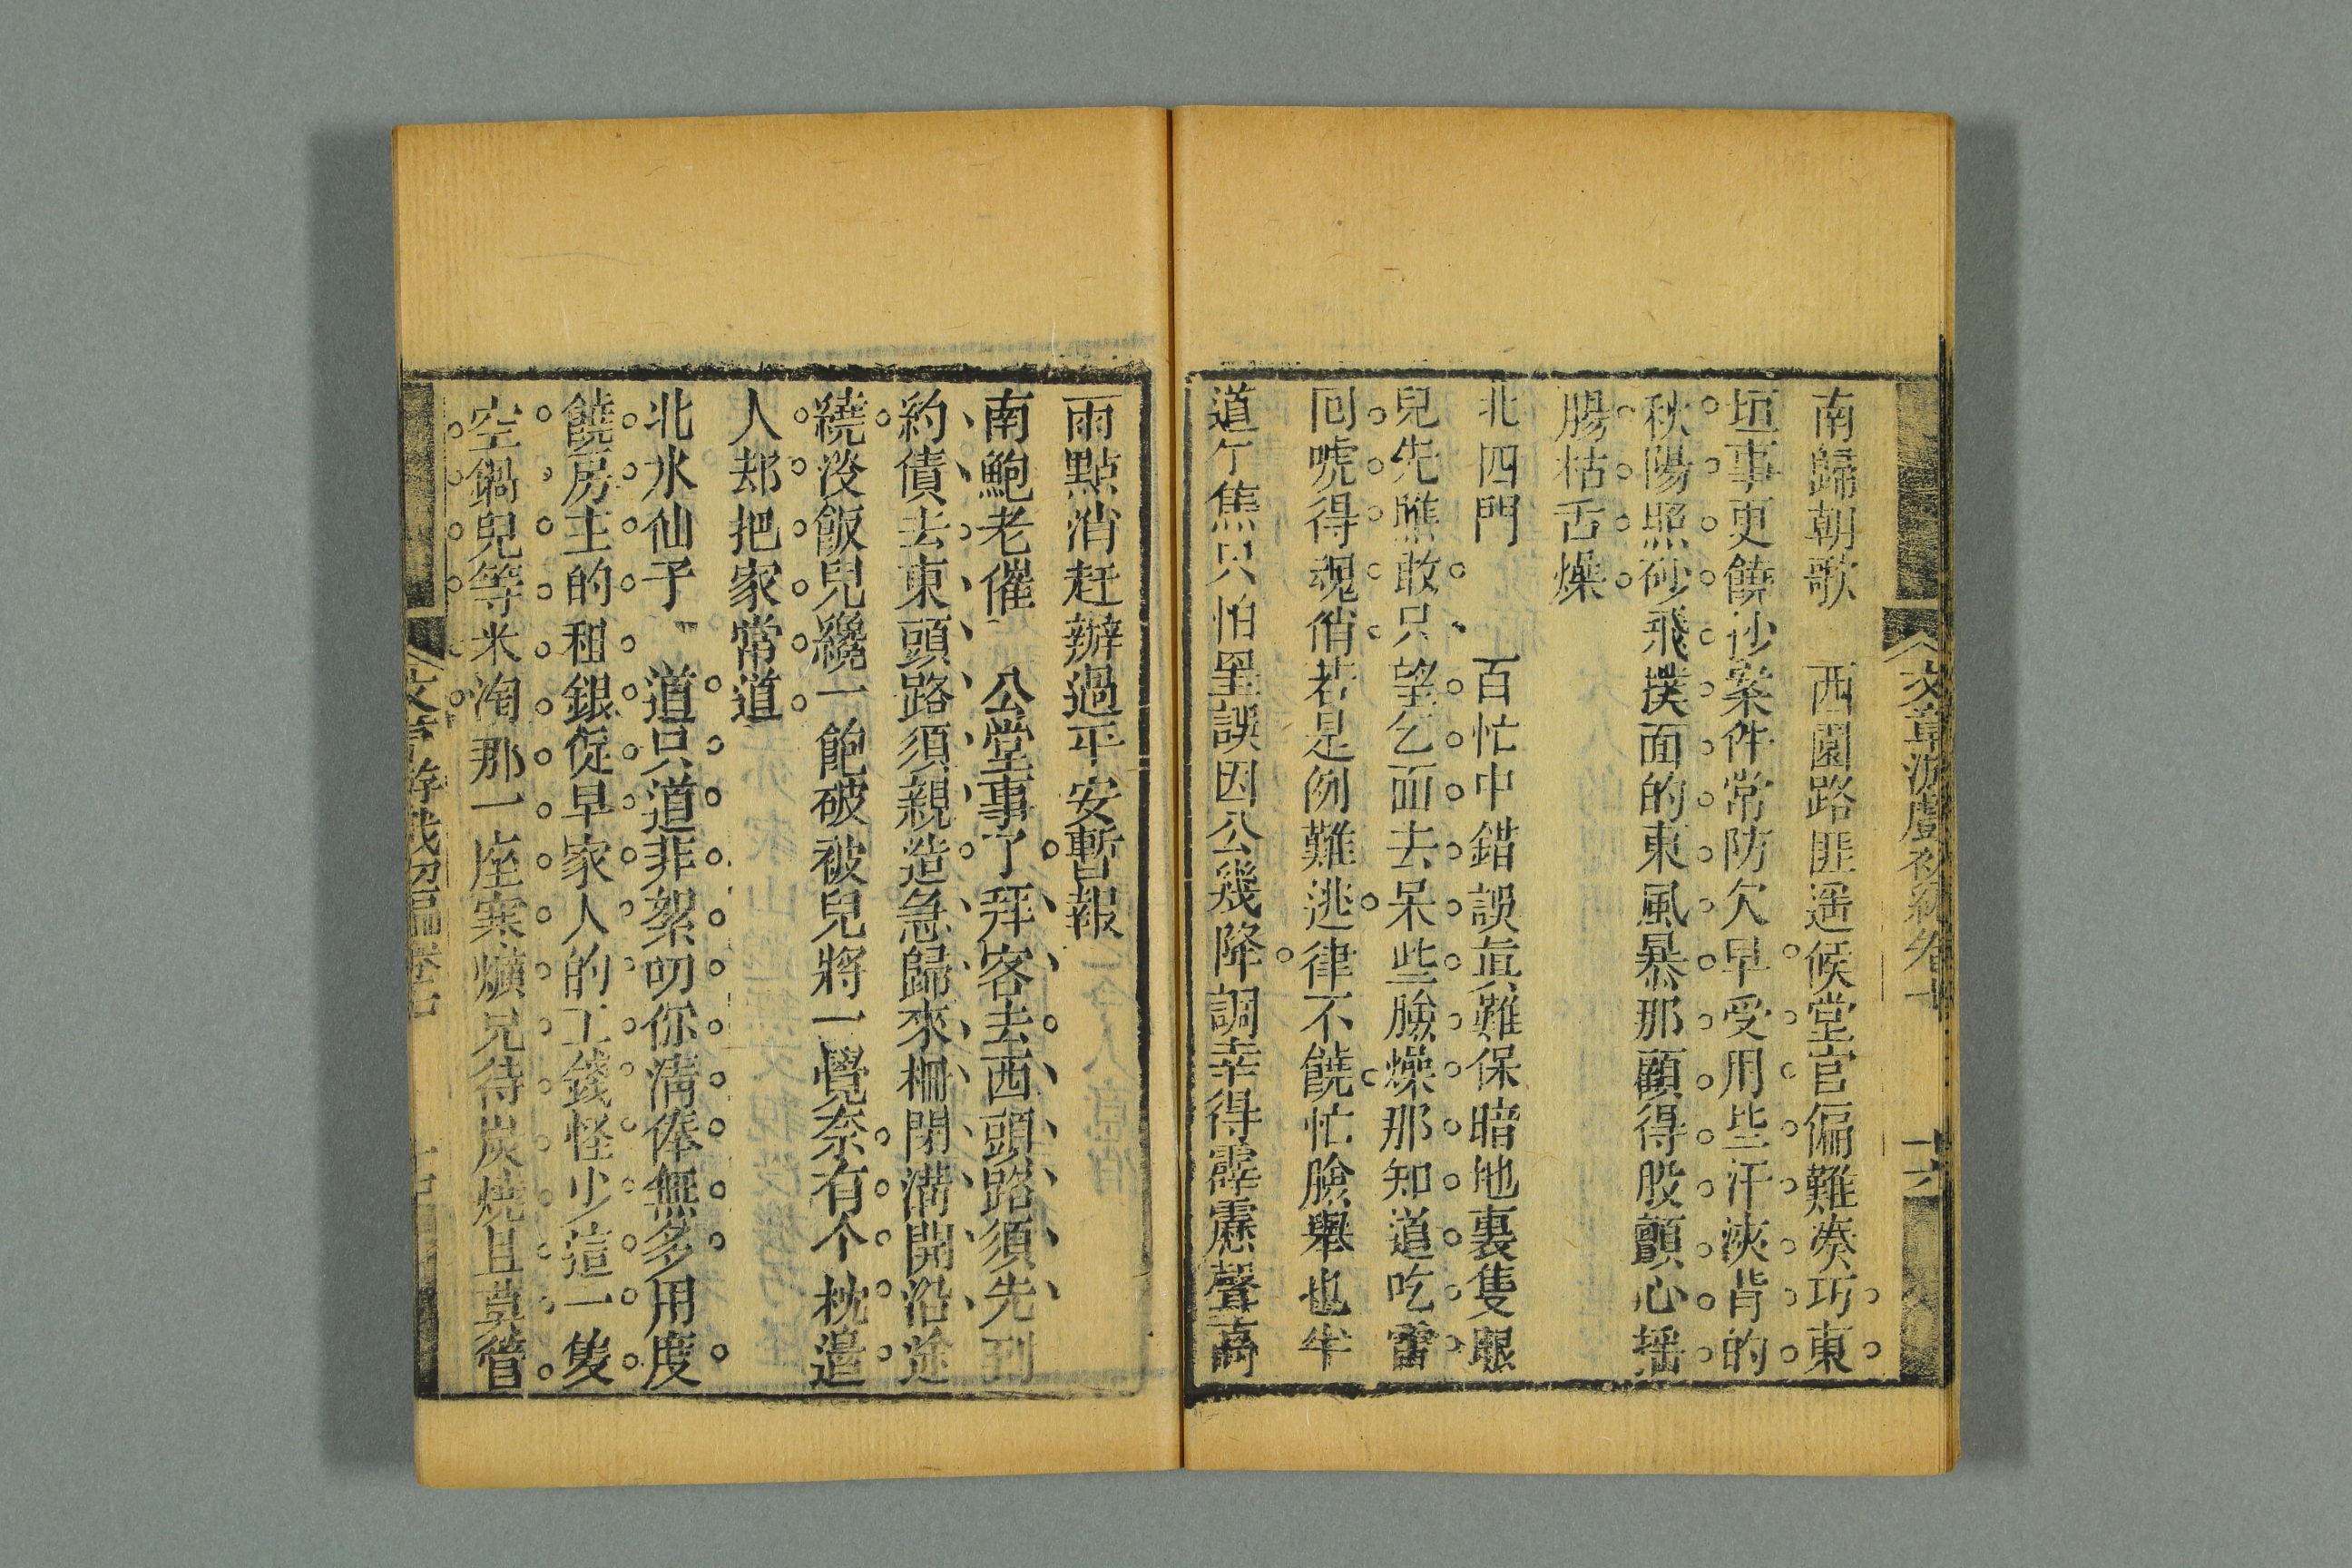 文章游戲初編卷十
十六
南歸朝歌　西園路匪遥候堂官偏難凑巧東
垣事更饒抄案件常防欠早受用些汗浹背的
秋陽照砂飛撲面的東風暴那顧得股顫心摇
腸枯舌燥
北四門　百忙中錯誤眞難保暗地裏隻眼
兒先瞧敢只望乞面去呆些臉燥那知道吃雷
囘唬得魂俏若是例難逃律不饒忙臉舉也半
道午焦只怕罣誤因公幾降調幸得霹靂聲高
雨點消赶辦過平安暫報
南鮑老催　公堂事了拜客去西頭路須先到
約債去東頭路須親造急歸來柵閉溝開沿途
繞没飯兒纔一飽破被兒將一覺奈有个枕邉
人却把家常道
北水仙子　道只道非絮叨你清俸無多用度
饒房主的租銀促早家人的工錢怪少這一隻
空鍋兒等米淘那一座寒爌兒待炭燒且莫管
文章游戲初編卷